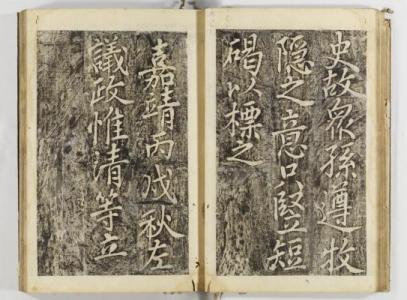 史故眾孫遵牧
隱之意口竪短
碣以標之
嘉靖丙戌秋左
議政惟清等立